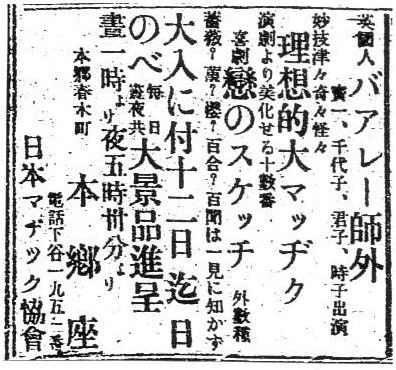 英國人 バアレー師外
寶一、千代子、君子、時子出演
妙技津々奇々怪々
理想的大マッヂク
演劇より美化せる十數番
喜劇 戀のスケッチ 外數種
薔薇?菫?櫻?百合?百聞は一見に如かず
大入に付十二日迄日
のべ 毎日晝夜共 大景品進呈
晝一時より夜五時卅分より
本鄕春木町 本鄕座
電話下谷一九五二番
日本マヂック協會